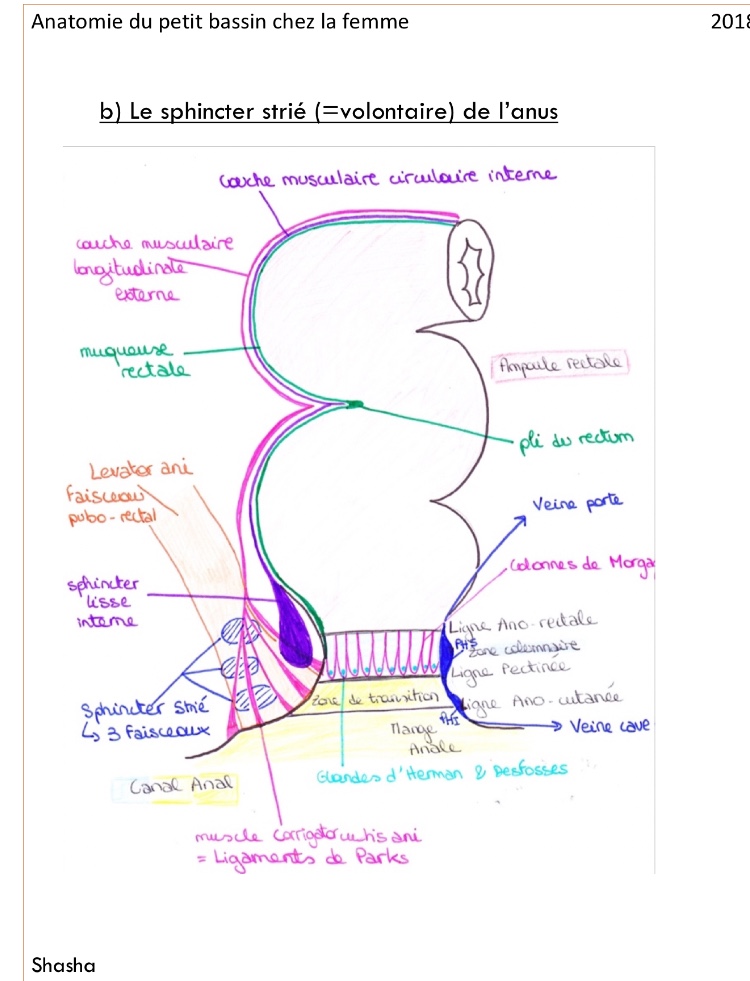 Anatomie du petit bassin chez la femme
2018
b) Le sphincter strié (=volontaire) de l'anus
couche musculaire circulaire interne
couche musculaire
longitudinale
externe
muqueuse
rectale
Ampoule rectale
pli du rectum
Levator ani
Faisceau
pubo-rectal
Veine porte
Colonnes de Morga
sphincter
lisse
interne
Ligne Ano-rectale
PHS
zone columnaire
Ligne Pectinée
Zone de transition
Ligne Ano-cutanée
Sphincter Strié
↳ 3 Faisceaux
PHI
Veine cave
Marge
Anale
Glandes d'Herman & Desfosses
Canal Anal
muscle Corrigator cutis ani
= Ligaments de Parks
Shasha